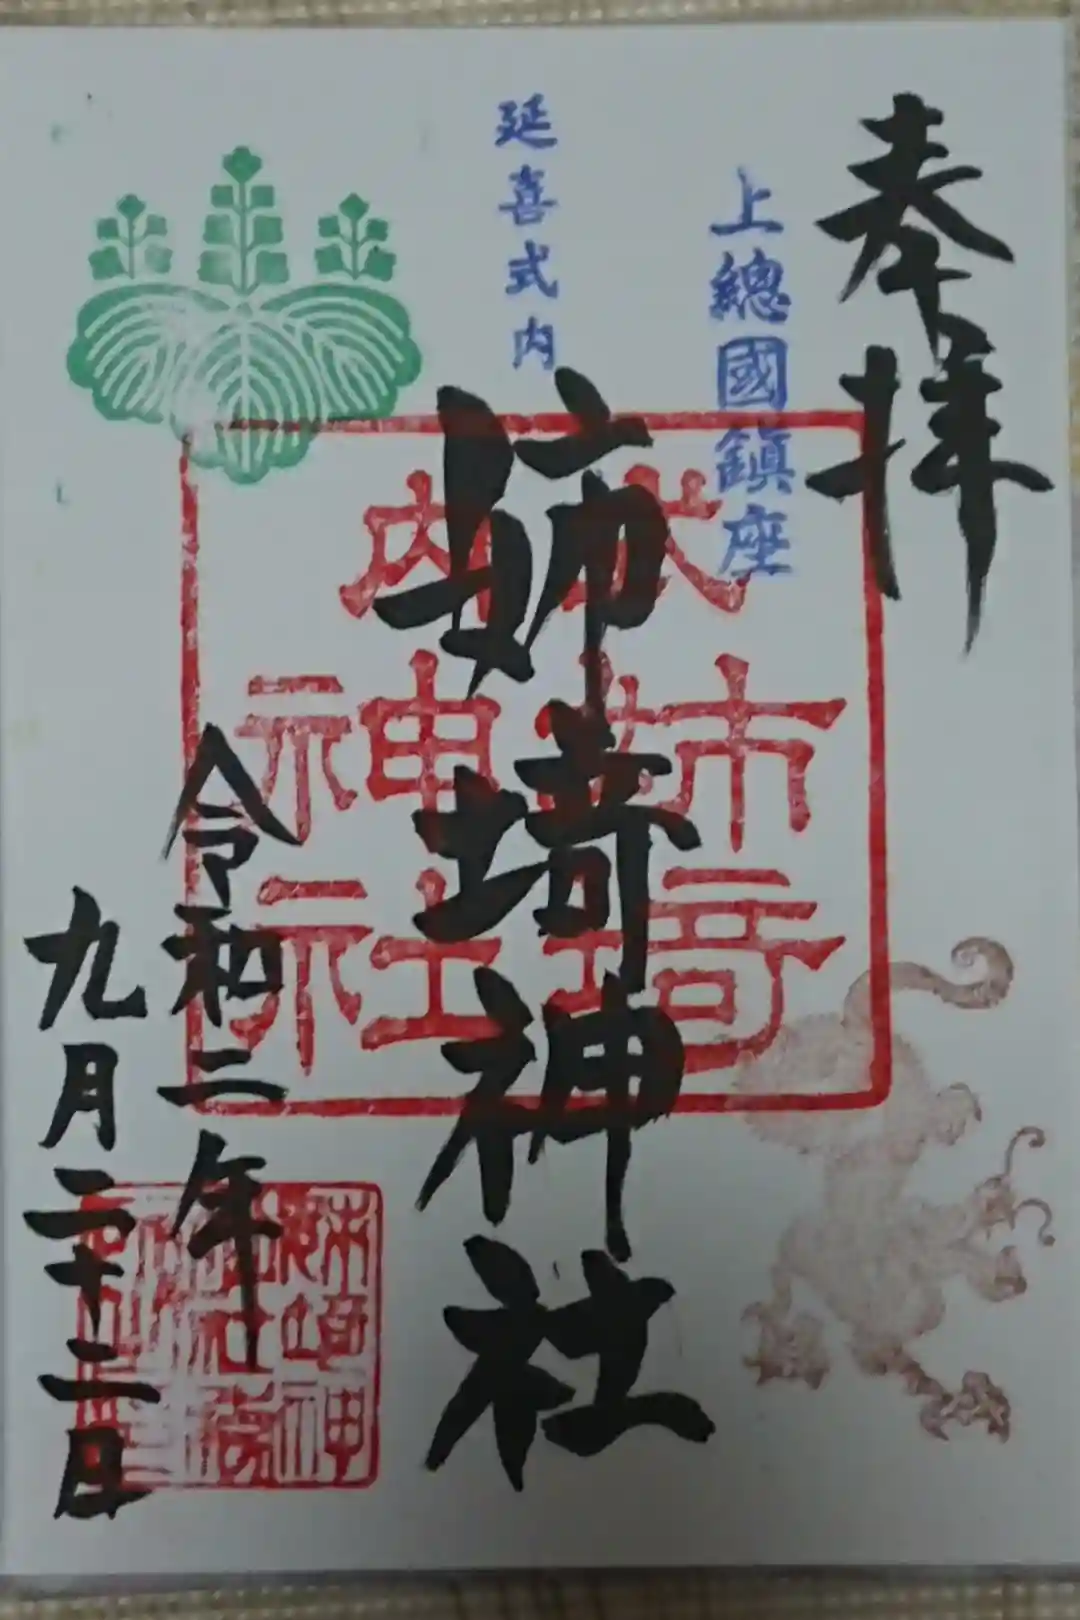 奉拝
上總國鎮座
延喜式内
姉埼神社
式内
姉埼
神社
令和二年
九月二十二日